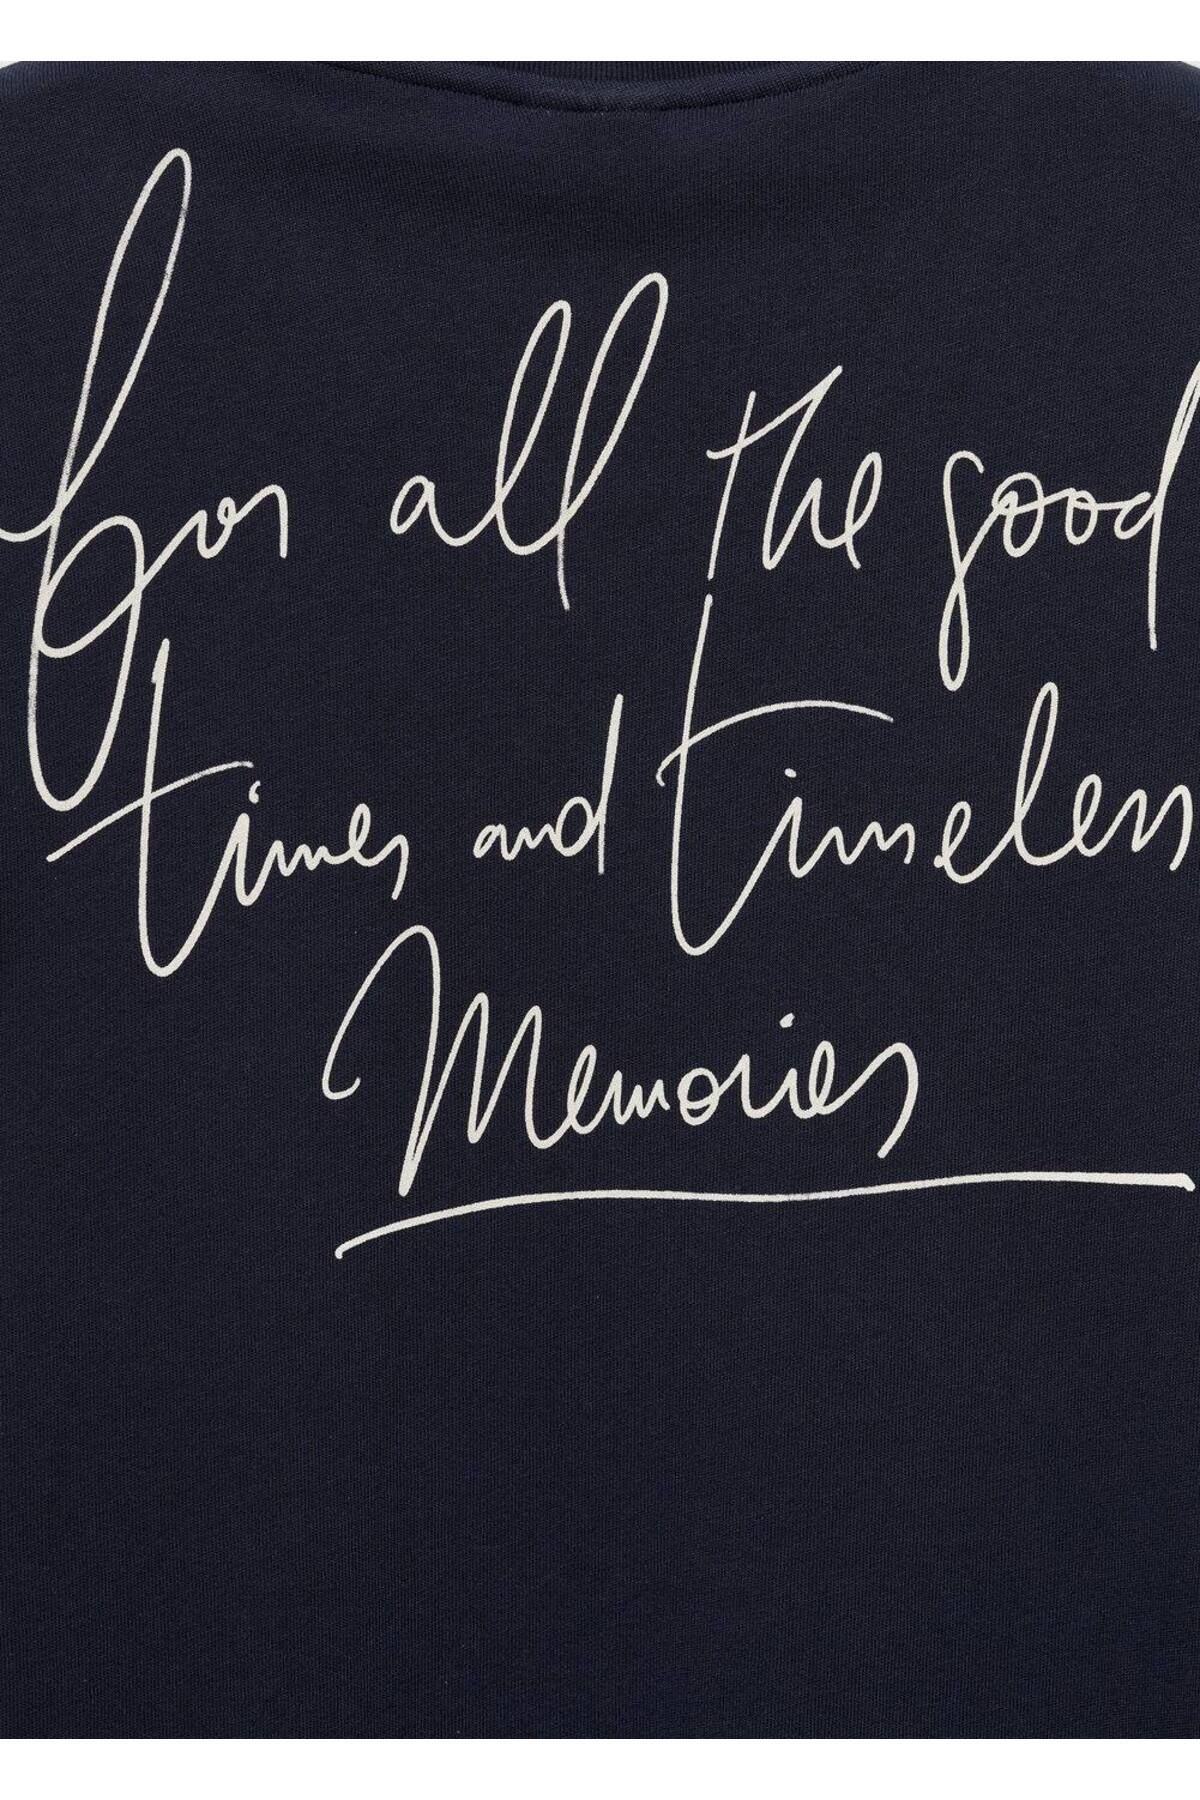 for all the good
times and timeless
Memories